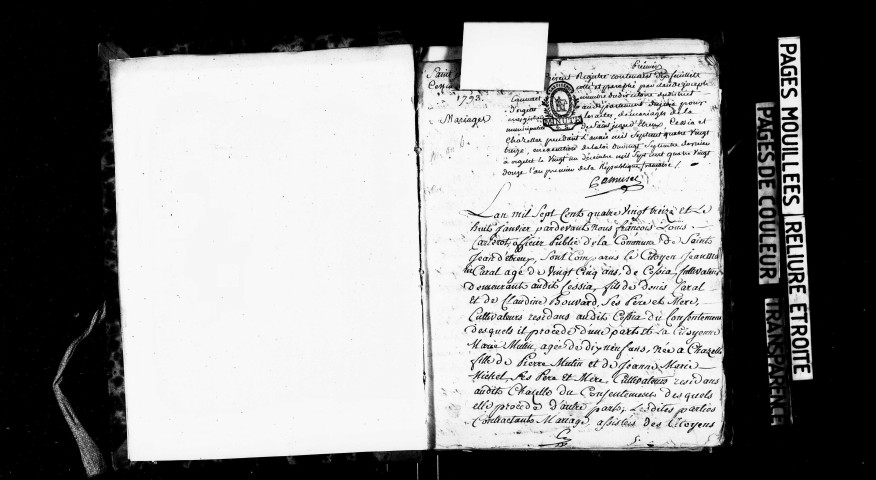 Premier
Registre contenant feuillets
cotté et paraphé par
1793.
Mariages
MINUTE
au département du Jura pour
les actes de mariages de la
municipalité de Saint jean d'Etreux, Cessia et
Chazelles pendant l'année mil Sept cent quatre vingt
treize, en exécution de la loi du vingt Septembre dernier
à orgelet le vingt un décembre mil Sept cent quatre vingt
douze l'an premier de la République française /.
Camuset
Lan mil Sept Cents quatre Vingt treize et Le
huit Janvier pardevant Nous françois Louis
officier Public de la Commune de Saint
Jean d'etreux, Sont Comparus Le Citoyen
Caral agé de Vingt Cinq ans, de Cessia Cultivateur
Demeurant audit Cessia, fils de Denis Caral
et de Claudine Bouvard, Ses Pere et Mere,
Cultivateurs residans audit Cessia du Consentement
desquels il procède d'une part, et La Citoyenne
Marie Mutin, agée de dix neuf ans, Née a Chazelle
fille de Pierre Mutin et de Jeanne Marie
Michel, Ses Pere et Mere, Cultivateurs residans
audit Chazelle du Consentement desquels
elle procède d'autre part, Lesdites parties
Contractants Mariage, assistées des Citoyens
PAGES MOUILLEES RELIURE ETROITE
PAGES DE COULEUR TRANSPARENCE